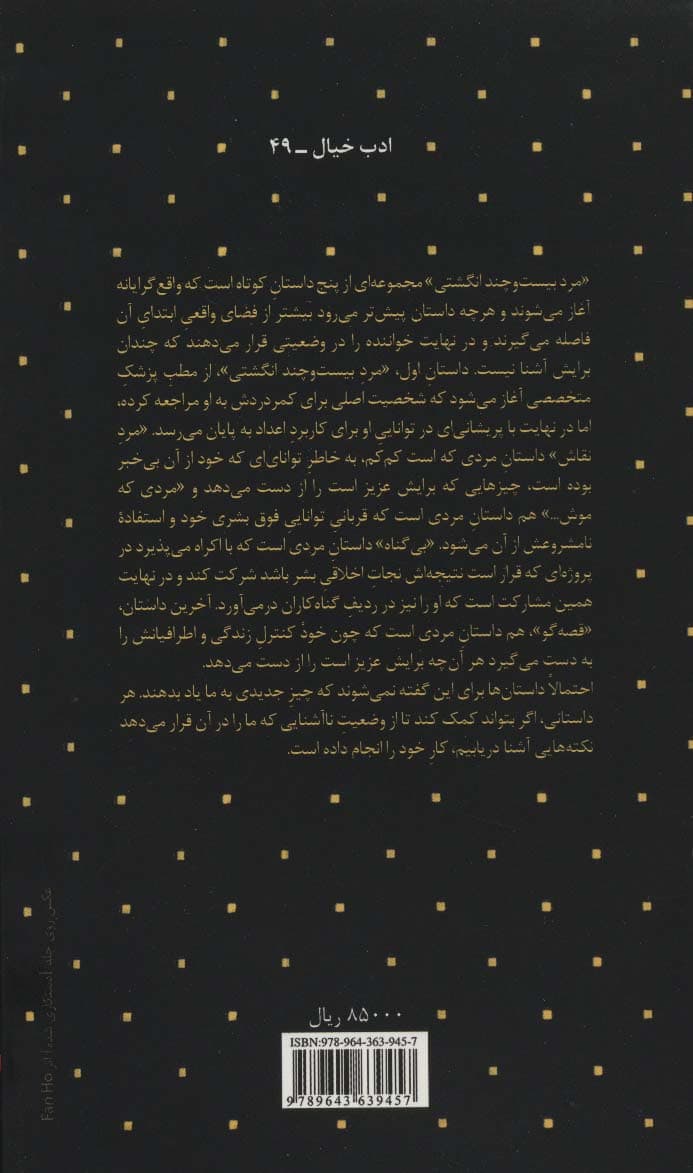 ادب خیال ـ ۴۹
«مرد بیست‌وچند انگشتی» مجموعه‌ای از پنج داستانِ کوتاه است که واقع‌گرایانه
آغاز می‌شوند و هرچه داستان پیش‌تر می‌رود بیشتر از فضای واقعیِ ابتدایِ آن
فاصله می‌گیرند و در نهایت خواننده را در وضعیتی قرار می‌دهند که چندان
برایش آشنا نیست. داستانِ اول، «مردِ بیست‌وچند انگشتی»، از مطبِ پزشکِ
متخصصی آغاز می‌شود که شخصیت اصلی برای کمردردش به او مراجعه کرده،
اما در نهایت با پریشانی‌ای در توانایی او برای کاربردِ اعداد به پایان می‌رسد. «مردِ
نقاش» داستانِ مردی که است کم‌کم، به خاطرِ توانای‌ای که خود از آن بی‌خبر
بوده است، چیزهایی که برایش عزیز است را از دست می‌دهد و «مردی که
موش...» هم داستانِ مردی است که قربانیِ تواناییِ فوق بشری خود و استفادهٔ
نامشروعش از آن می‌شود. «بی‌گناه» داستانِ مردی است که با اکراه می‌پذیرد در
پروژه‌ای که قرار است نتیجه‌اش نجاتِ اخلاقیِ بشر باشد شرکت کند و در نهایت
همین مشارکت است که او را نیز در ردیفِ گناه‌کاران درمی‌آورد. آخرین داستان،
«قصه‌گو»، هم داستانِ مردی است که چون خودْ کنترلِ زندگی و اطرافیانش را
به دست می‌گیرد هر آن‌چه برایش عزیز است را از دست می‌دهد.
احتمالاً داستان‌ها برای این گفته نمی‌شوند که چیزِ جدیدی به ما یاد بدهند. هر
داستانی، اگر بتواند کمک کند تا از وضعیتِ ناآشنایی که ما را در آن قرار می‌دهد
نکته‌هایی آشنا دریابیم، کارِ خود را انجام داده است.
عکس روی جلد [دستکاری شده] از Fan Ho
۸۵۰۰۰ ریال
ISBN:978-964-363-945-7
9 789643 639457